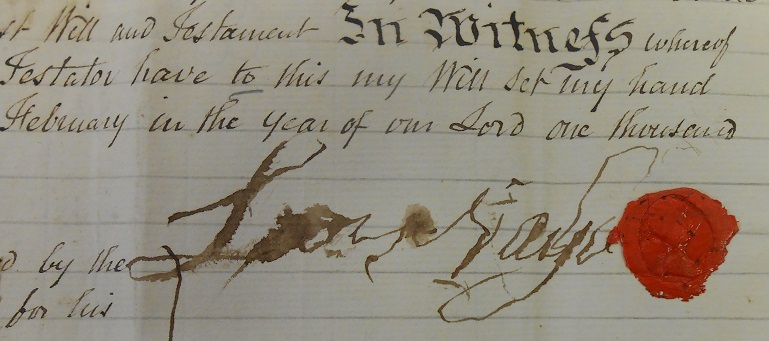 st Will and Testament In Witneſs whereof
Testator have to this my Will set my hand
February in the year of our Lord one thousand
d by the
for his